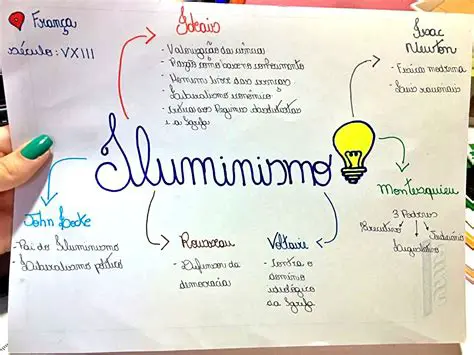 França
século: VXIII
Ideais
- Valorização da ciência
- Razão como base no conhecimento
- Homem livre das crenças
- Liberalismo econômico
- Críticas aos Regimes absolutistas
e a Igreja
Isaac
Newton
- Física moderna
- Leis racionais
Iluminismo
Montesquieu
3 Poderes
Executivo
Judiciário
Legislativo
John Locke
- Pai do Iluminismo
- Liberalismo político
Rousseau
- Defensor da
democracia
Voltaire
- Contra o
domínio
ideológico
da Igreja